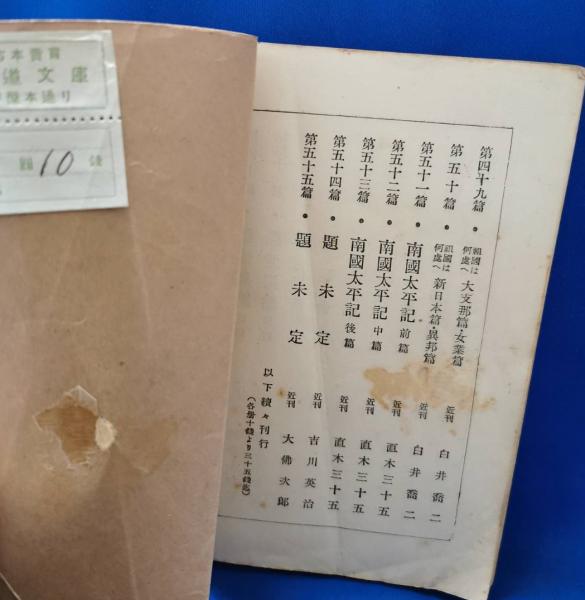 本賣買
道文庫
屋本通り
10 錢
第四十九篇・祖國は何處へ 大支那篇・女業篇 近刊 白井喬二
第五十篇・祖國は何處へ 新日本篇・異邦篇 近刊 白井喬二
第五十一篇・南國太平記 前篇 近刊 直木三十五
第五十二篇・南國太平記 中篇 近刊 直木三十五
第五十三篇・南國太平記 後篇 近刊 直木三十五
第五十四篇・題未定 近刊 吉川英治
第五十五篇・題未定 近刊 大佛次郎
以下續々刊行
(各册十錢より三十五錢迄)